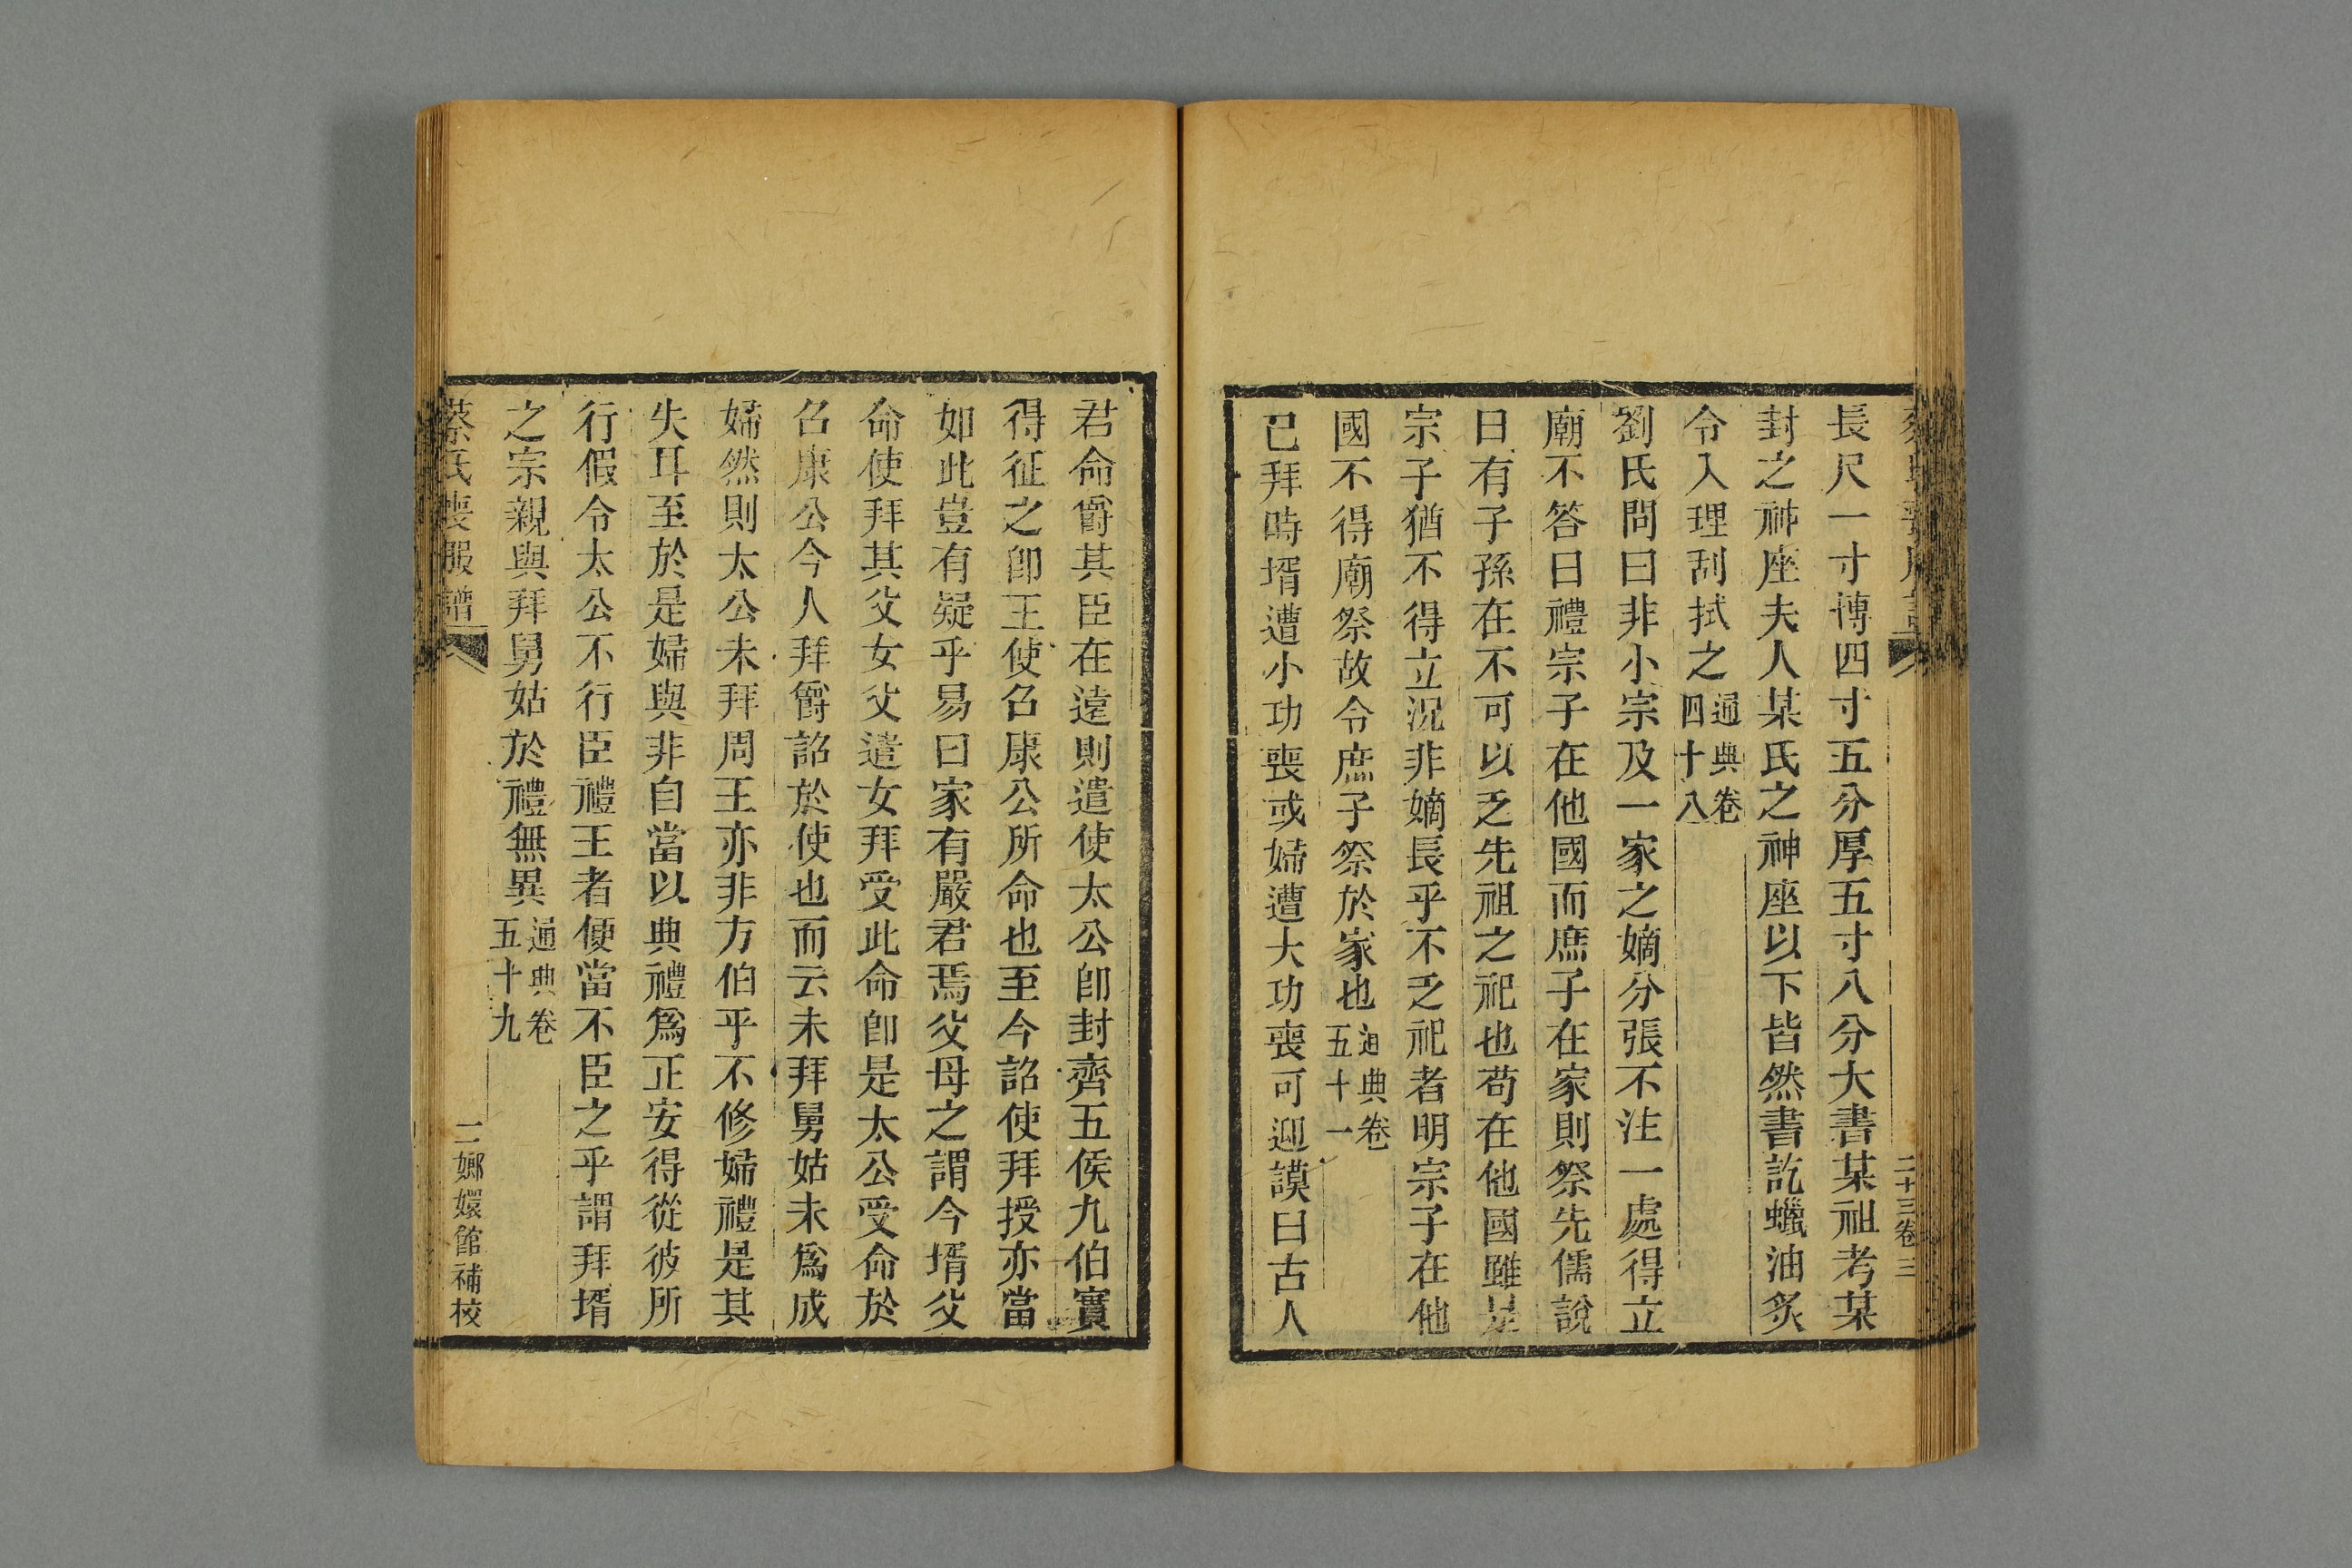 長尺一寸博四寸五分厚五寸八分大書某祖考某
封之神座夫人某氏之神座以下皆然書訖蠟油炙
令入理刮拭之通典卷四十八
劉氏問曰非小宗及一家之嫡分張不注一處得立
廟不答曰禮宗子在他國而庶子在家則祭先儒說
曰有子孫在不可以乏先祖之祀也苟在他國雖是
宗子猶不得立況非嫡長乎不乏祀者明宗子在他
國不得廟祭故令庶子祭於家也通典卷五十一
已拜時壻遭小功喪或婦遭大功喪可迎謨曰古人
二十三卷三
君命爵其臣在遠則遣使太公卽封齊五侯九伯實
得征之卽王使召康公所命也至今詔使拜授亦當
如此豈有疑乎易曰家有嚴君焉父母之謂今壻父
命使拜其父女父遣女拜受此命卽是太公受命於
召康公今人拜爵詔於使也而云未拜舅姑未爲成
婦然則太公未拜周王亦非方伯乎不修婦禮是其
失耳至於是婦與非自當以典禮爲正安得從彼所
行假令太公不行臣禮王者便當不臣之乎謂拜壻
之宗親與拜舅姑於禮無異通典卷五十九
蔡氏喪服譜
二嫏嬛館補校